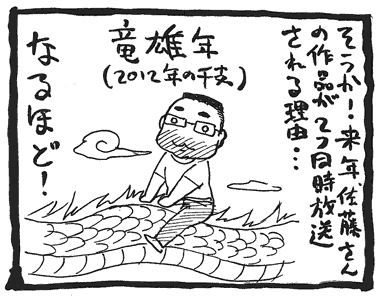 そうか!来年佐藤さん
の作品が2つ同時放送
される理由…
竜雄年
(2012年の干支)
なるほど!